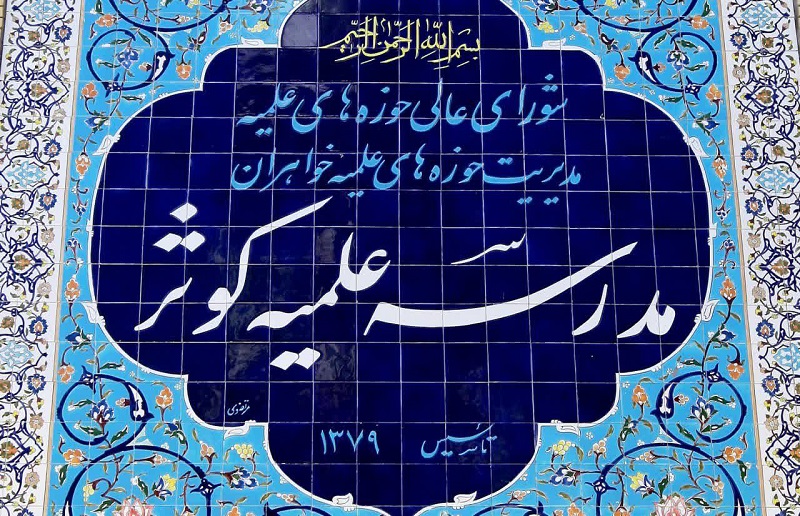 بسم الله الرحمن الرحیم
شورای عالی حوزه های علمیه
مدیریت حوزه های علمیه خواهران
مدرسه علمیه کوثر
مرتضوی
تاسیس ۱۳۷۹